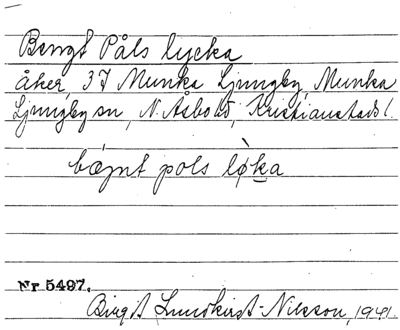 Bengt Påls lycka
åker, 37 Munka Ljungby, Munka
Ljungby sn, N. Åsbo hd, Kristianstads l.
pols løka
Nr 5497.
Birgit Lundkvist-Nilsson, 1941.